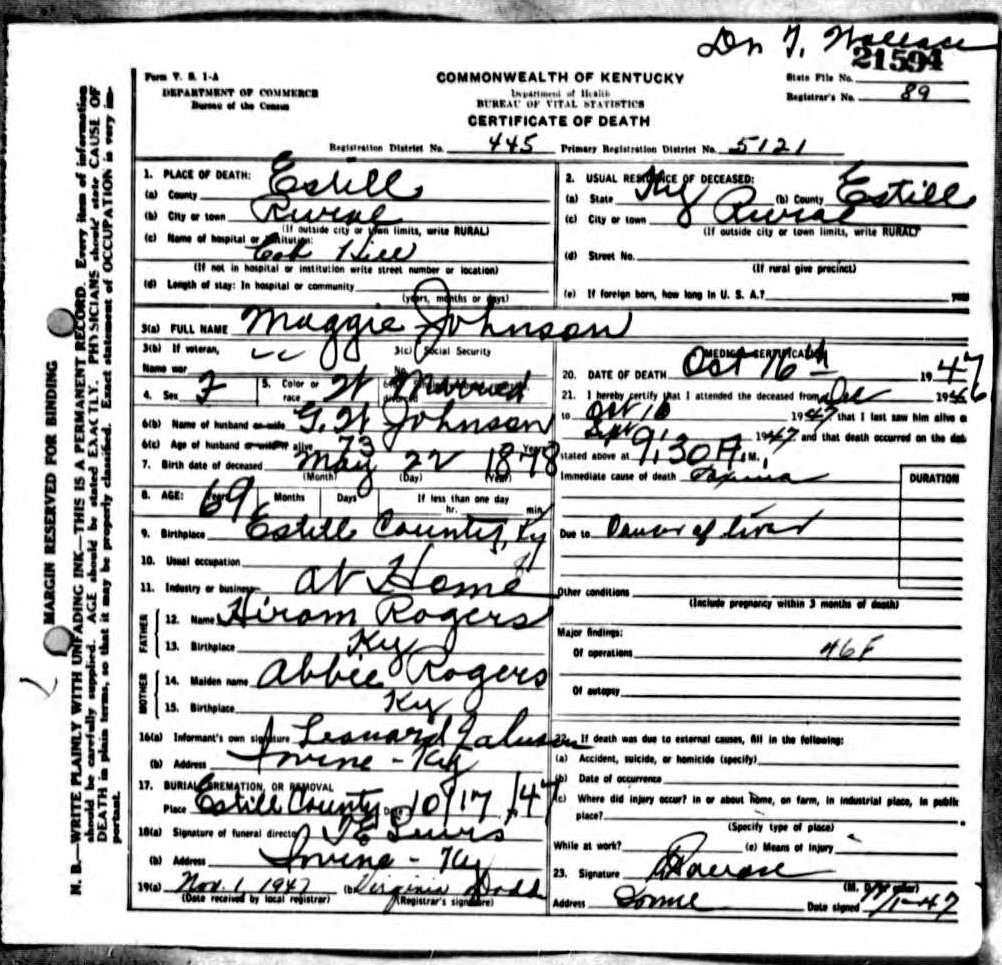 Dr T. Wallace
21594
Form V. S. 1-A
DEPARTMENT OF COMMERCE
Bureau of the Census
COMMONWEALTH OF KENTUCKY
Department of Health
BUREAU OF VITAL STATISTICS
CERTIFICATE OF DEATH
State File No.
Registrar's No. 89
Registration District No. 445 Primary Registration District No. 5121
MARGIN RESERVED FOR BINDING
N. B.—WRITE PLAINLY WITH UNFADING INK—THIS IS A PERMANENT RECORD. Every item of information
should be carefully supplied. AGE should be stated EXACTLY. PHYSICIANS should state CAUSE OF
DEATH in plain terms, so that it may be properly classified. Exact statement of OCCUPATION is very im-
portant.
1. PLACE OF DEATH:
(a) County Estill
(b) City or town Rural
(If outside city or town limits, write RURAL)
(c) Name of hospital or institution:
Cob Hill
(If not in hospital or institution write street number or location)
(d) Length of stay: In hospital or community
(years, months or days)
2. USUAL RESIDENCE OF DECEASED:
(a) State Ky (b) County Estill
(c) City or town Rural
(If outside city or town limits, write RURAL)
(d) Street No.
(If rural give precinct)
(e) If foreign born, how long in U. S. A.? years
3(a) FULL NAME Maggie Johnson
3(b) If veteran,
Name war
3(c) Social Security
No.
4. Sex F 5. Color or race W Married
6(b) Name of husband or wife G. W Johnson
6(c) Age of husband or wife if alive 73 Years
7. Birth date of deceased May 22 1878
(Month) (Day) (Year)
8. AGE: Years 69 Months Days If less than one day
hr. min.
9. Birthplace Estill County, Ky
10. Usual occupation
11. Industry or business at Home
FATHER
12. Name Hiram Rogers
13. Birthplace Ky
MOTHER
14. Maiden name Abbie Rogers
15. Birthplace Ky
16(a) Informant's own signature Leonard Johnson
(b) Address Irvine - Ky
17. BURIAL, CREMATION, OR REMOVAL
Place Estill County Date 10/17/47
18(a) Signature of funeral director Lewis
(b) Address Irvine - Ky
19(a) Nov. 1, 1947 (b) Virginia Dodd
(Date received by local registrar) (Registrar's signature)
MEDICAL CERTIFICATION
20. DATE OF DEATH Oct 16th 1947
21. I hereby certify that I attended the deceased from Dec 1946
to Oct 16 1947, that I last saw him alive o
Sept 1947 and that death occurred on the dat
stated above at 9:30 A M.
Immediate cause of death
DURATION
Due to Cancer of liver
Other conditions
(Include pregnancy within 3 months of death)
Major findings:
Of operations 46F
Of autopsy
22. If death was due to external causes, fill in the following:
(a) Accident, suicide, or homicide (specify)
(b) Date of occurrence
(c) Where did injury occur? in or about home, on farm, in industrial place, in public
place?
(Specify type of place)
While at work? (e) Means of Injury
23. Signature Wallace
Address Date signed 11/1-47